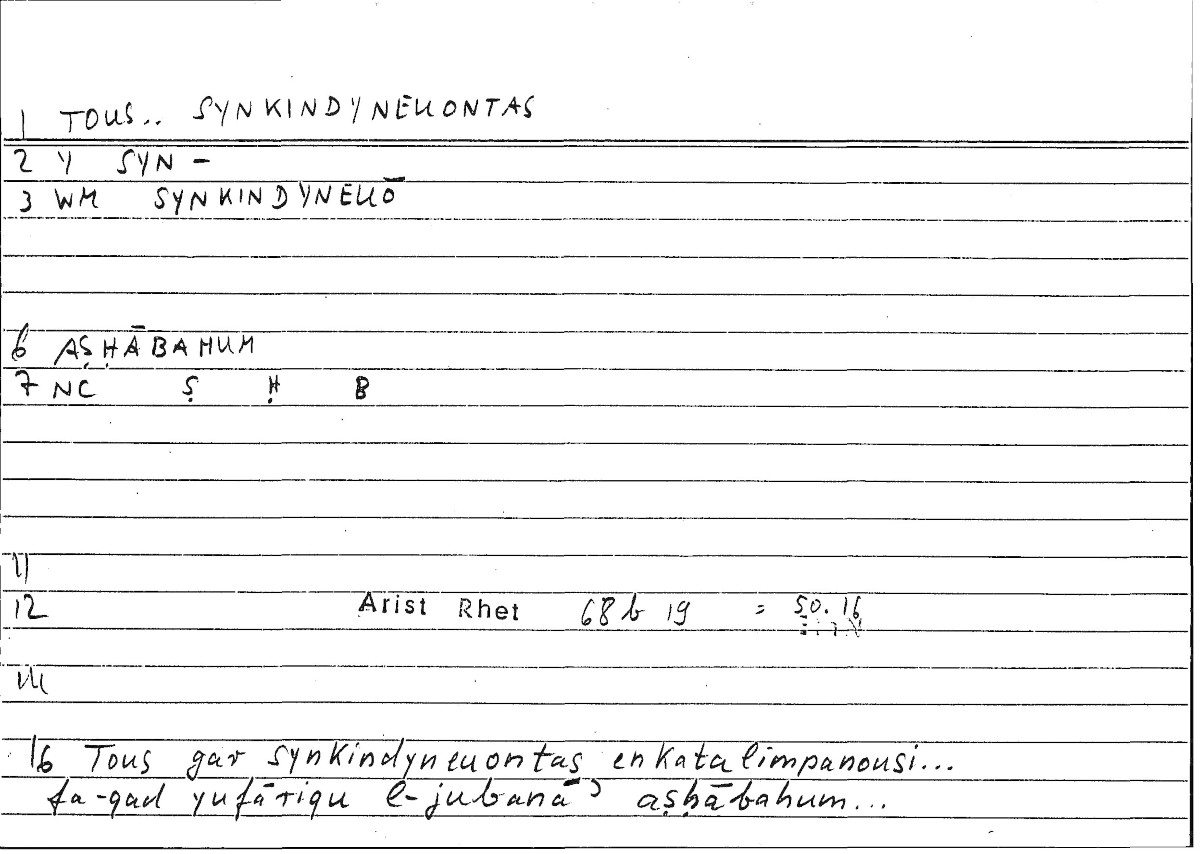 1 TOUS.. SYNKINDYNEUONTAS
2 Y SYN -
3 WM SYNKINDYNEUŌ
6 AṢḤĀBAHUM
7 NC Ṣ Ḥ B
11
12 Arist Rhet 68b 19 = 50.16
14
16 Tous gar synkindyneuontas enkatalimpanousi...
fa-qad yufāriqu l-jubanāʾ aṣḥābahum...